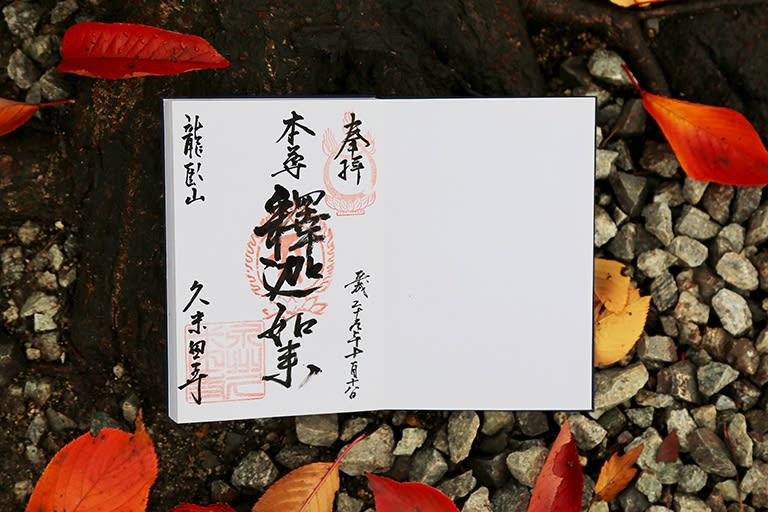 奉拝
平成二十九年
本尊
釋迦如来
龍臥山
久米田寺